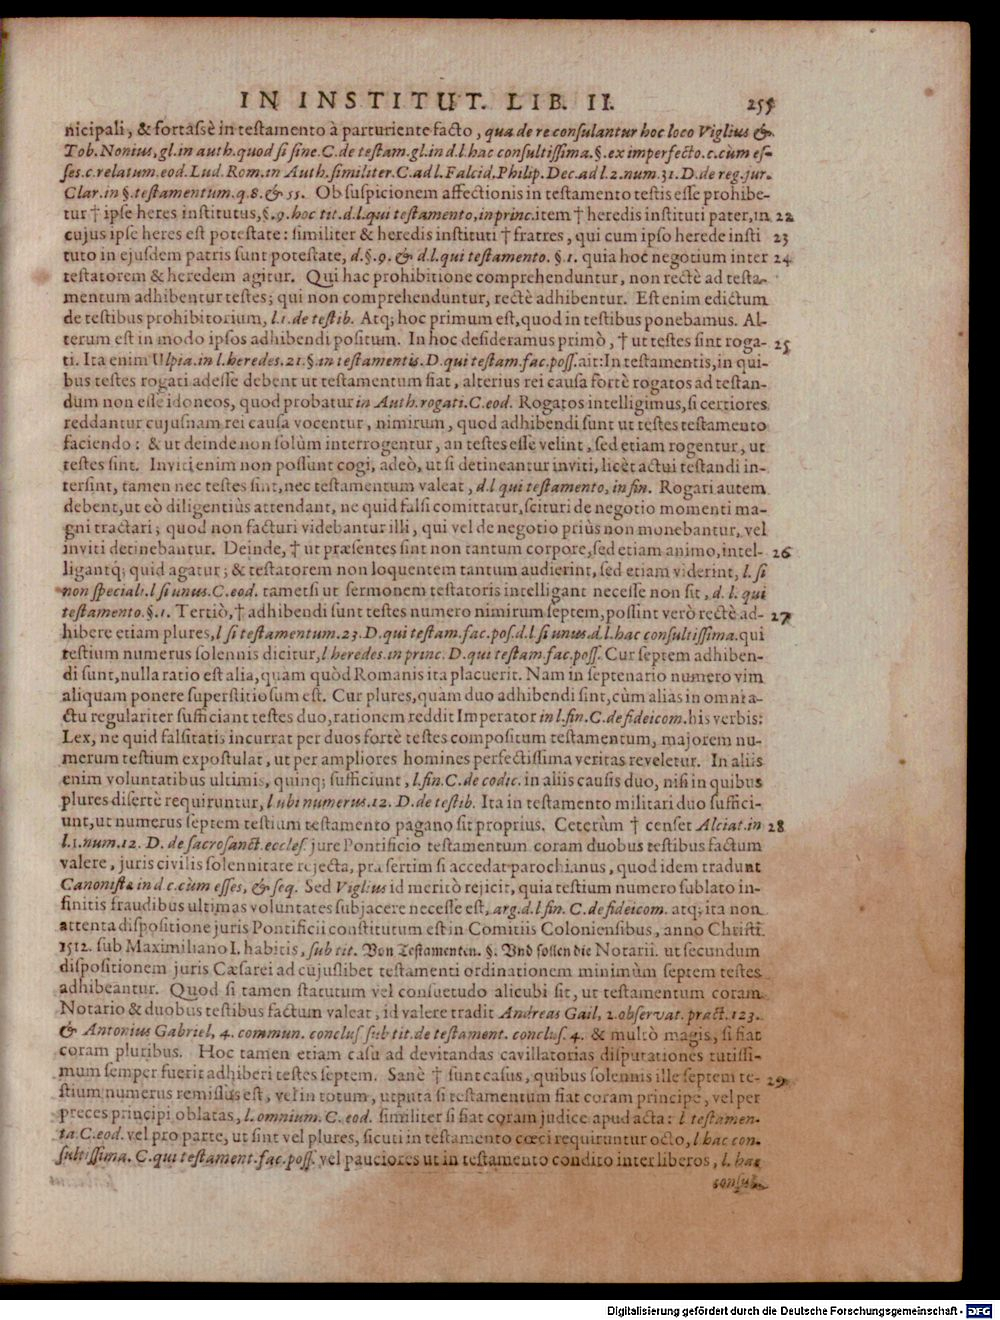 IN INSTITUT. LIB. II. 255
nicipali, & fortassè in testamento à parturiente facto, qua de re consulantur hoc loco Viglius &
Tob. Nonius, gl. in auth. quod si sine. C. de testam. gl. in d. l. hac consultissima. §. ex imperfecto. c. cùm es-
ses. c. relatum. eod. Lud. Rom. in Auth. similiter. C. ad l. Falcid. Philip. Dec. ad l. 2. num. 31. D. de reg. jur.
Clar. in §. testamentum. q. 8. & 55. Ob suspicionem affectionis in testamento testis esse prohibe-
tur † ipse heres institutus, §. 9. hoc tit. d. l. qui testamento, in princ. item † heredis instituti pater, in 22
cujus ipse heres est potestate: similiter & heredis instituti † fratres, qui cum ipso herede insti 23
tuto in ejusdem patris sunt potestate, d. §. 9. & d. l. qui testamento. §. 1. quia hoc negotium inter 24
testatorem & heredem agitur. Qui hac prohibitione comprehenduntur, non rectè ad testa-
mentum adhibentur testes; qui non comprehenduntur, rectè adhibentur. Est enim edictum
de testibus prohibitorium, l. 1. de testib. Atq; hoc primum est, quod in testibus ponebamus. Al-
terum est in modo ipsos adhibendi positum. In hoc desideramus primò, † ut testes sint roga- 25
ti. Ita enim Ulpia. in l. heredes. 21. §. in testamentis. D. qui testam. fac. poss. ait: In testamentis, in qui-
bus testes rogati adesse debent ut testamentum fiat, alterius rei causa fortè rogatos ad testan-
dum non esse idoneos, quod probatur in Auth. rogati. C. eod. Rogatos intelligimus, si certiores
reddantur cujusnam rei causa vocentur, nimirum, quod adhibendi sunt ut testes testamento
faciendo: & ut deinde non solùm interrogentur, an testes esse velint, sed etiam rogentur, ut
testes sint. Inviti enim non possunt cogi, adeò, ut si detineantur inviti, licèt actui testandi in-
tersint, tamen nec testes sint, nec testamentum valeat, d. l qui testamento, in fin. Rogari autem
debent, ut eò diligentiùs attendant, ne quid falsi comittatur, scituri de negotio momenti ma-
gni tractari; quod non facturi videbantur illi, qui vel de negotio priùs non monebantur, vel
inviti detinebantur. Deinde, † ut præsentes sint non tantum corpore, sed etiam animo, intel- 26
ligantq; quid agatur; & testatorem non loquentem tantum audierint, sed etiam viderint, l. si
non speciali. l si unus. C. eod. tametsi ut sermonem testatoris intelligant necesse non sit, d. l. qui
testamento. §. 1. Tertiò, † adhibendi sunt testes numero nimirum septem, possint verò rectè ad- 27
hibere etiam plures, l si testamentum. 23. D. qui testam. fac. pos. d. l si unus. d. l. hac consultissima. qui
testium numerus solennis dicitur, l heredes. in princ. D. qui testam. fac. poss. Cur septem adhiben-
di sunt, nulla ratio est alia, quam quòd Romanis ita placuerit. Nam in septenario numero vim
aliquam ponere superstitiosum est. Cur plures, quàm duo adhibendi sint, cùm alias in omni a-
ctu regulariter sufficiant testes duo, rationem reddit Imperator in l. fin. C. de fideicom. his verbis:
Lex, ne quid falsitatis incurrat per duos fortè testes compositum testamentum, majorem nu-
merum testium expostulat, ut per ampliores homines perfectissima veritas reveletur. In aliis
enim voluntatibus ultimis, quinq; sufficiunt, l. fin. C. de codic. in aliis causis duo, nisi in quibus
plures disertè requiruntur, l ubi numerus. 12. D. de testib. Ita in testamento militari duo suffici-
unt, ut numerus septem testium testamento pagano sit proprius. Ceterùm † censet Alciat. in 28
l. 1. num. 12. D. de sacrosanct. eccles. jure Pontificio testamentum coram duobus testibus factum
valere, juris civilis solennitate rejecta, præsertim si accedat parochianus, quod idem tradunt
Canonistæ in d c. cùm esses, & seq. Sed Viglius id meritò rejicit, quia testium numero sublato in-
finitis fraudibus ultimas voluntates subjacere necesse est, arg. d. l. fin. C. de fideicom. atq; ita non
attenta dispositione juris Pontificii constitutum est in Comitiis Coloniensibus, anno Christi
1512. sub Maximiliano I. habitis, sub tit. Von Testamenten. §. Vnd sollen die Notarii. ut secundum
dispositionem juris Cæsarei ad cujuslibet testamenti ordinationem minimùm septem testes
adhibeantur. Quod si tamen statutum vel consuetudo alicubi sit, ut testamentum coram
Notario & duobus testibus factum valeat, id valere tradit Andreas Gail, 2. observat. pract. 123.
& Antonius Gabriel, 4. commun. conclus sub tit. de testament. conclus. 4. & multò magis, si fiat
coram pluribus. Hoc tamen etiam casu ad devitandas cavillatorias disputationes tutissi-
mum semper fuerit adhiberi testes septem. Sanè † sunt casus, quibus solennis ille septem te- 29
stium numerus remissus est, vel in totum, utputa si testamentum fiat coram principe, vel per
preces principi oblatas, l. omnium. C. eod. similiter si fiat coram judice apud acta: l testamen-
ta. C. eod. vel pro parte, ut sint vel plures, sicuti in testamento cœci requiruntur octo, l hac con-
sultissima. C. qui testament. fac. poss. vel pauciores ut in testamento condito inter liberos, l. hac
consul-
Digitalisierung gefördert durch die Deutsche Forschungsgemeinschaft - DFG